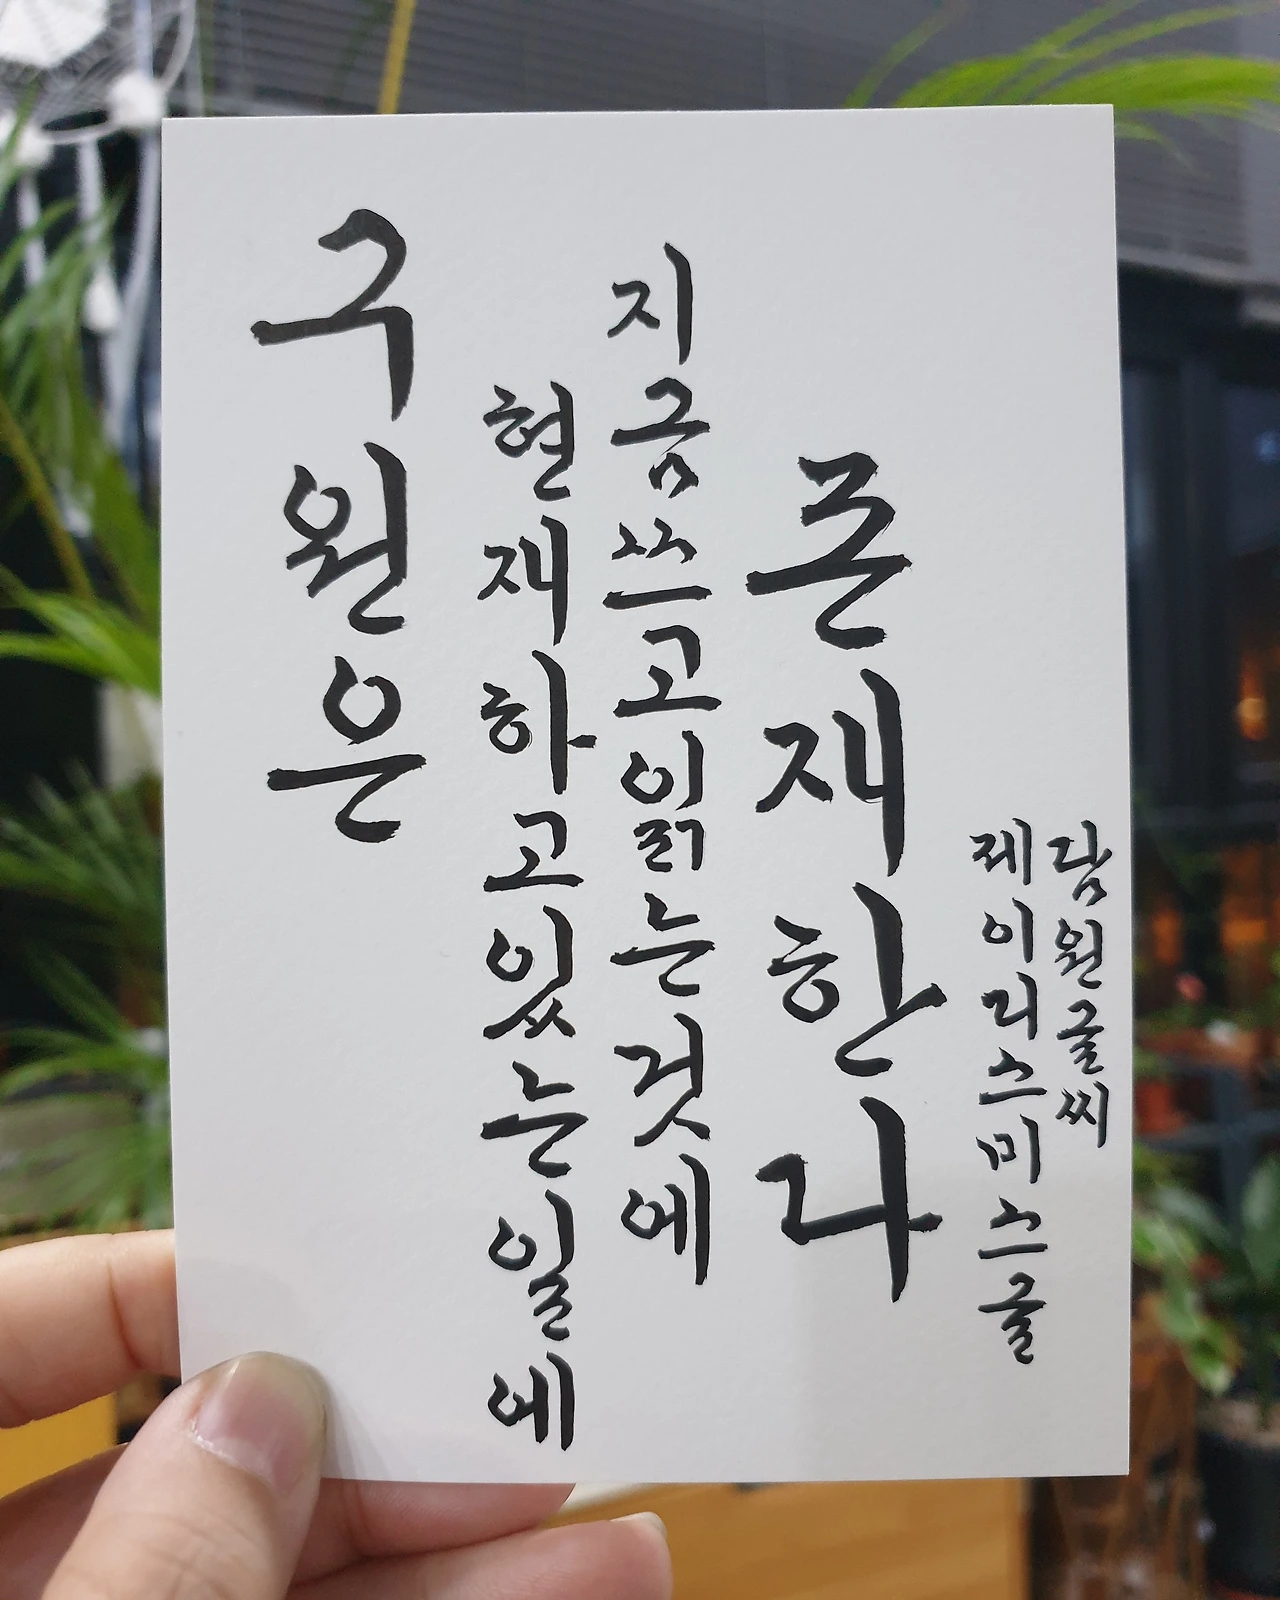 구원은
현재하고있는일에
지금쓰고읽는것에
존재한다
제이디스미스글
담원글씨